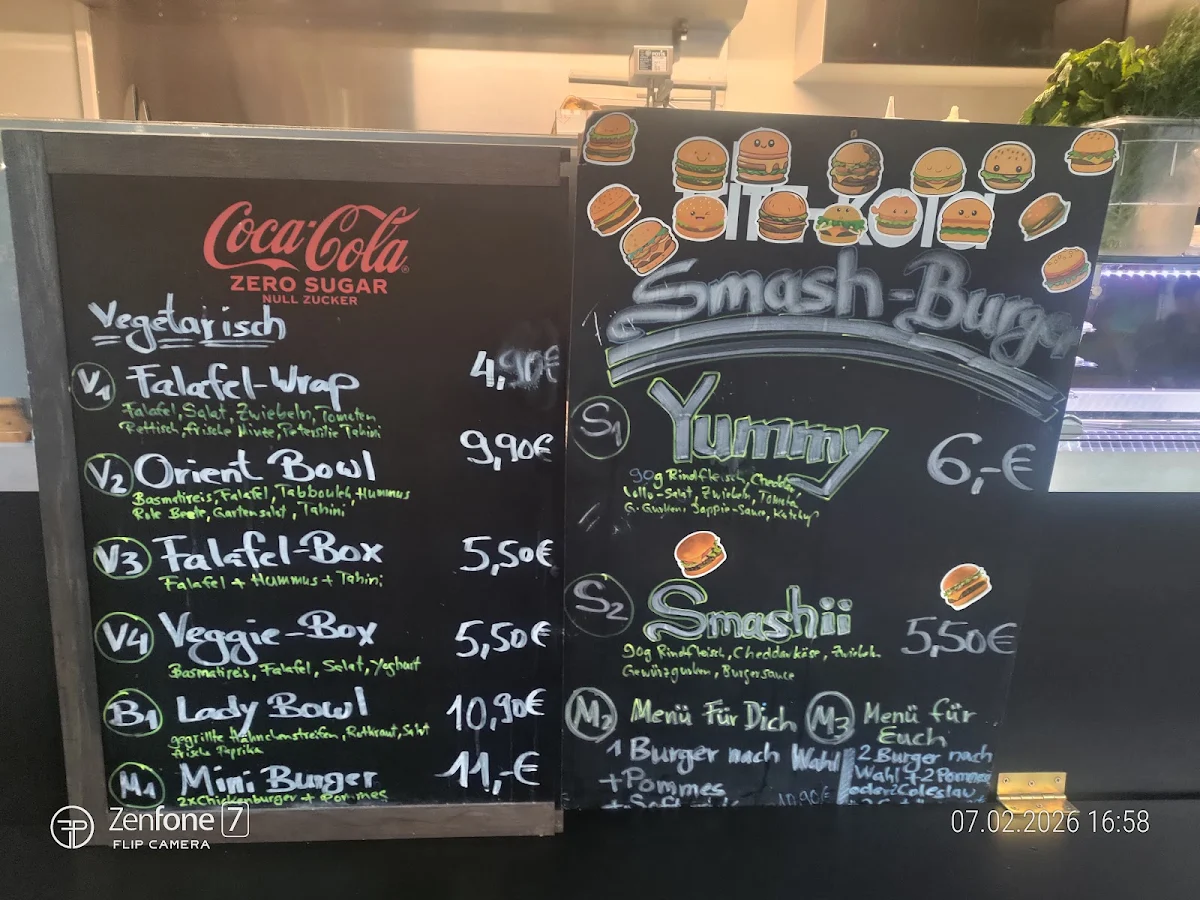 Coca-Cola
ZERO SUGAR
NULL ZUCKER
Vegetarisch
V1 Falafel-Wrap 4,90€
Falafel, Salat, Zwiebeln, Tomaten
Rettisch, frische Minze, Petersilie Tahini
V2 Orient Bowl 9,90€
Basmatireis, Falafel, Tabbouleh, Hummus
Rote Beete, Gartensalat, Tahini
V3 Falafel-Box 5,50€
Falafel + Hummus + Tahini
V4 Veggie-Box 5,50€
Basmatireis, Falafel, Salat, Yoghurt
B1 Lady Bowl 10,90€
gegrillte Hähnchenstreifen, Rotkraut, Salat
frische Paprika
M1 Mini Burger 11,-€
2xChickenburger + Pommes
Smash-Burger
S1 Yummy 6,-€
90g Rindfleisch, Cheddar,
Lollo-Salat, Zwiebeln, Tomate
G. Gurken, Joppie-Sauce, Ketchup
S2 Smashii 5,50€
90g Rindfleisch, Cheddarkäse, Zwiebeln
Gewürzgurken, Burgersauce
M2 Menü Für Dich
1 Burger nach Wahl
+Pommes
10,90€
M3 Menü für
Euch
2 Burger nach
Wahl + 2 Pommes
oder 2 Coleslaw
Zenfone 7
FLIP CAMERA
07.02.2026 16:58